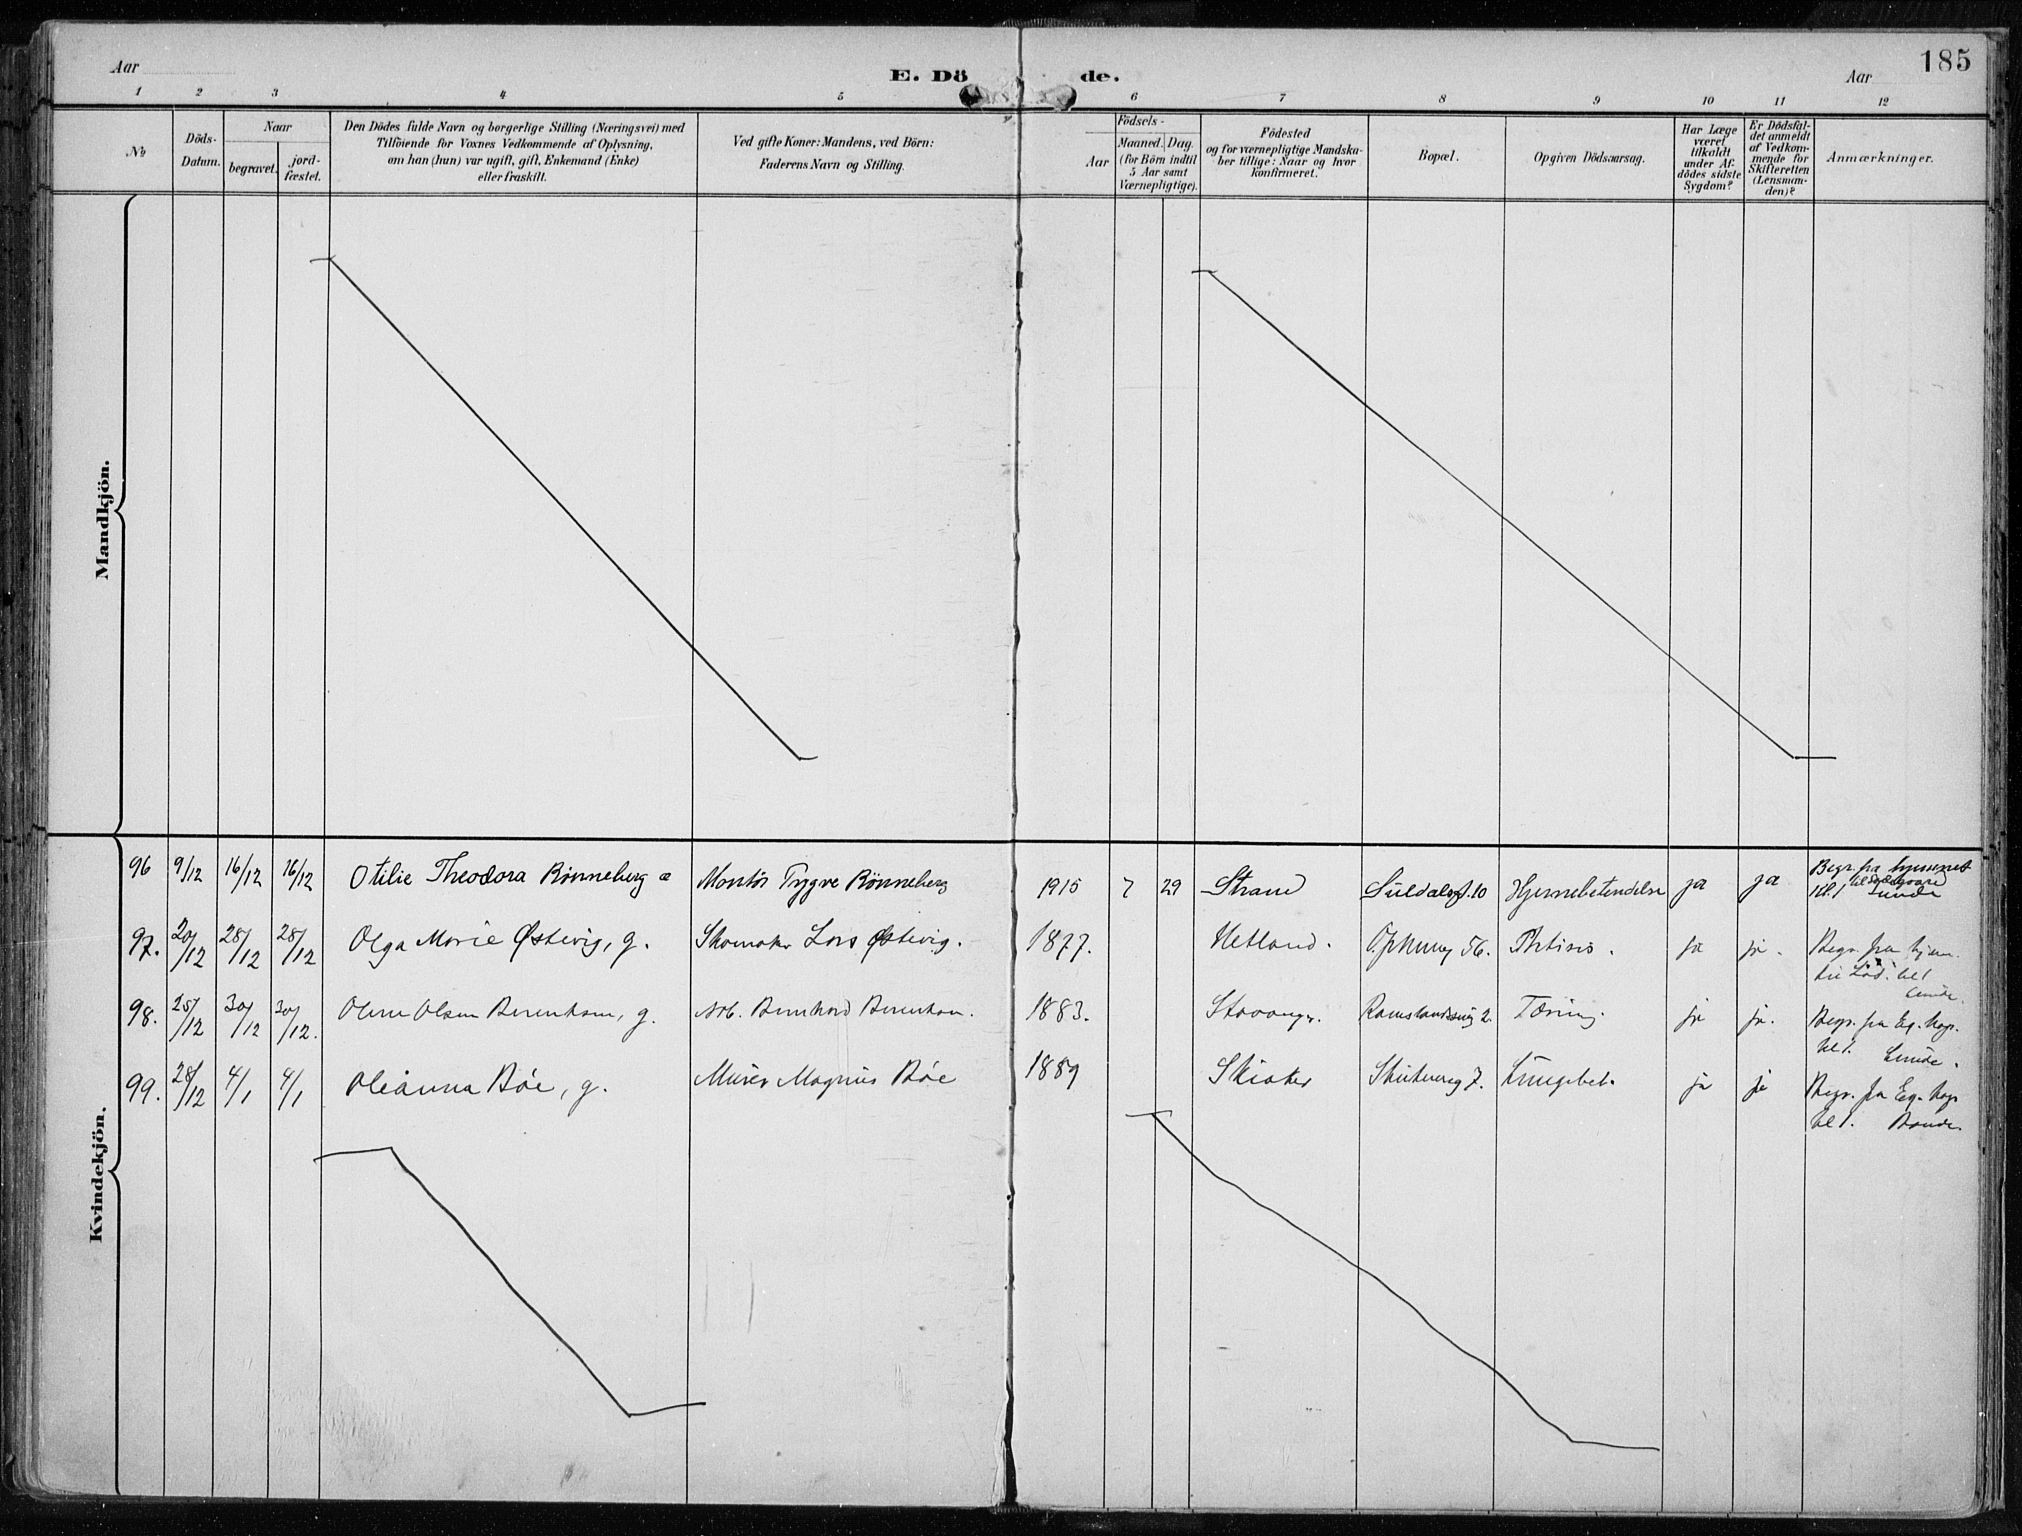 185
Aar
E. Dö de.
Aar
1 2 3 4 5 6 7 8 9 10 11 12
№
Döds-
Datum.
Naar
begravet.
jord-
fæstet.
Den Dödes fulde Navn og borgerlige Stilling (Næringsvei) med
Tilföiende for Voxnes Vedkommende af Oplysning,
om han (hun) var ugift, gift, Enkemand (Enke)
eller fraskilt.
Ved gifte Koner: Mandens, ved Börn:
Faderens Navn og Stilling.
Födsels-
Aar
Maaned. Dag.
(for Börn indtil
5 Aar samt
Værnepligtige).
Födested
og for værnepligtige Mandska-
ber tillige: Naar og hvor
konfirmeret.
Bopæl.
Opgiven Dödsaarsag.
Har Læge
været
tilkaldt
under Af-
dödes sidste
Sygdom?
Er Dödsfal-
det anmeldt
af Vedkom-
mende for
Skifteretten
(Lensman-
den)?
Anmærkninger.
Mandkjön.
Kvindekjön.
96 9/12 16/12 16/12 Otilie Theodora Rønneberg æ Montør Trygve Rønneberg 1915 7 29 Strand Suldalsgt. 10 Hjernebetendelse ja ja Begr. fra hjemmet
Kl. 1 Lunde
97. 20/12 28/12 28/12 Olga Marie Østevig, g. Skomaker Lars Østevig. 1877. Hetland. 56. Phtisis. ja ja. Begr. fra hjem.
kl 1
Lunde.
98. 25/12 30/12 30/12. Olsen g. Arb. 1883. Stavanger. 2. Tæring. ja ja. Begr. fra Eg. kap.
kl 1. Lunde.
99. 28/12 4/1 4/1 Oleanna Bøe, g. Murer Magnus Bøe 1889 7. Lungebet. ja ja Begr. fra Eg. kap
kl 1.